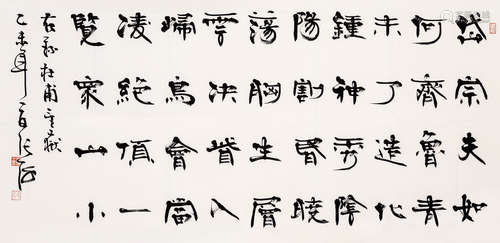 岱宗夫如
何齊魯青
未了造化
鍾神秀陰
陽割昏曉
蕩胸生層
雲決眥入
歸鳥會當
凌絕頂一
覽衆山小
右録杜甫望嶽
乙未年